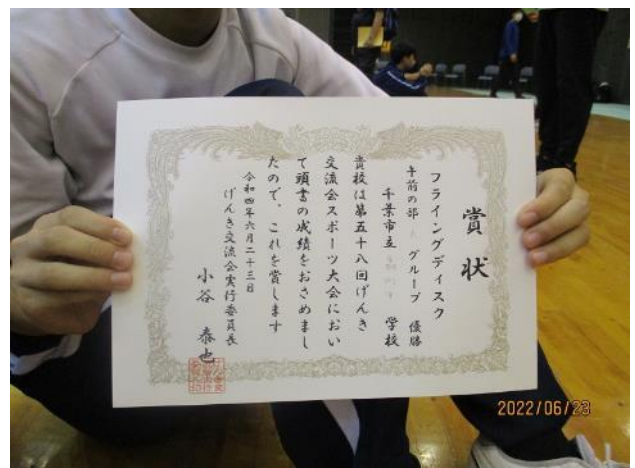 賞状
フライングディスク
午前の部 グループ 優勝
千葉市立 学校
貴校は第五十八回げんき
交流会スポーツ大会におい
て頭書の成績をおさめまし
たので、これを賞します
令和四年六月二十三日
げんき交流会実行委員長
小谷 泰也
2022/06/23